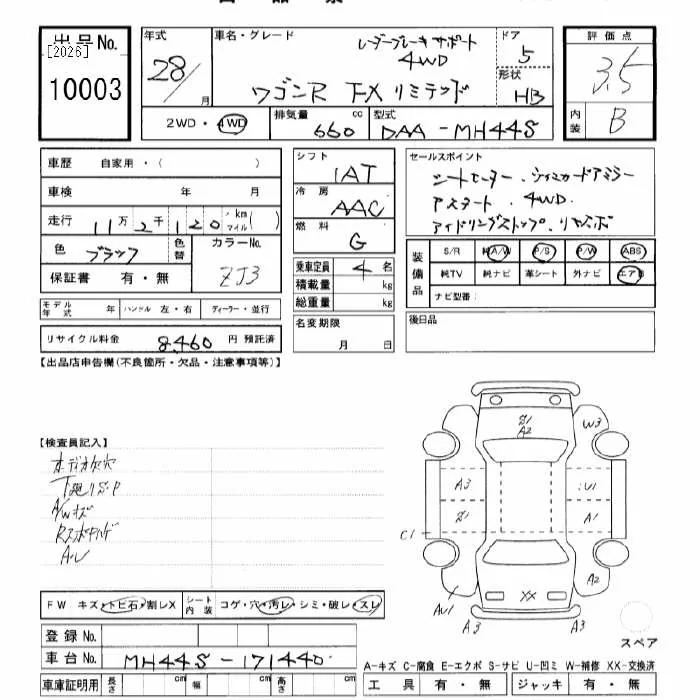 出品No.
[2026]
10003
年式
28/
月
車名・グレード
レーダーブレーキサポート
4WD
ワゴンR FX リミテッド
ドア
5
形状
HB
評価点
3.5
内装
B
2WD・4WD
排気量
660
cc
型式
DAA-MH44S
車歴 自家用・( )
車検 年 月
走行 11万2千120 km マイル ( )
色 ブラック
色替
カラーNo.
ZJ3
保証書 有・無
モデル年式 年 ハンドル 左・右 ディーラー・並行
リサイクル料金 8,460 円 預託済
シフト
IAT
冷房
AAC
燃料
G
乗車定員 4 名
積載量 kg
総重量 kg
名変期限
月 日
セールスポイント
シートヒーター.ウィンカードアミラー
Pスタート.4WD.
アイドリングストップ.リモコン
装備品
S/R 純A/W P/S P/W ABS
純TV 純ナビ 革シート 外ナビ エアB
ナビ型番:
後日品
【出品店申告欄(不良箇所・欠品・注意事項等)】
【検査員記入】
A/Wキズ
A・U
FW キズ・トビ石・割レX
シート内装 コゲ・穴・汚レ・シミ・破レ・スレ
登録No.
車台No. MH44S-171440
車庫証明用 長さ cm 幅 cm 高さ cm
A2
W3
A3
U1
A1
C1
A2
XX
AU1
A3
A3
スペア
A-キズ C-腐食 E-エクボ S-サビ U-凹ミ W-補修 XX-交換済
工具 有・無 ジャッキ 有・無